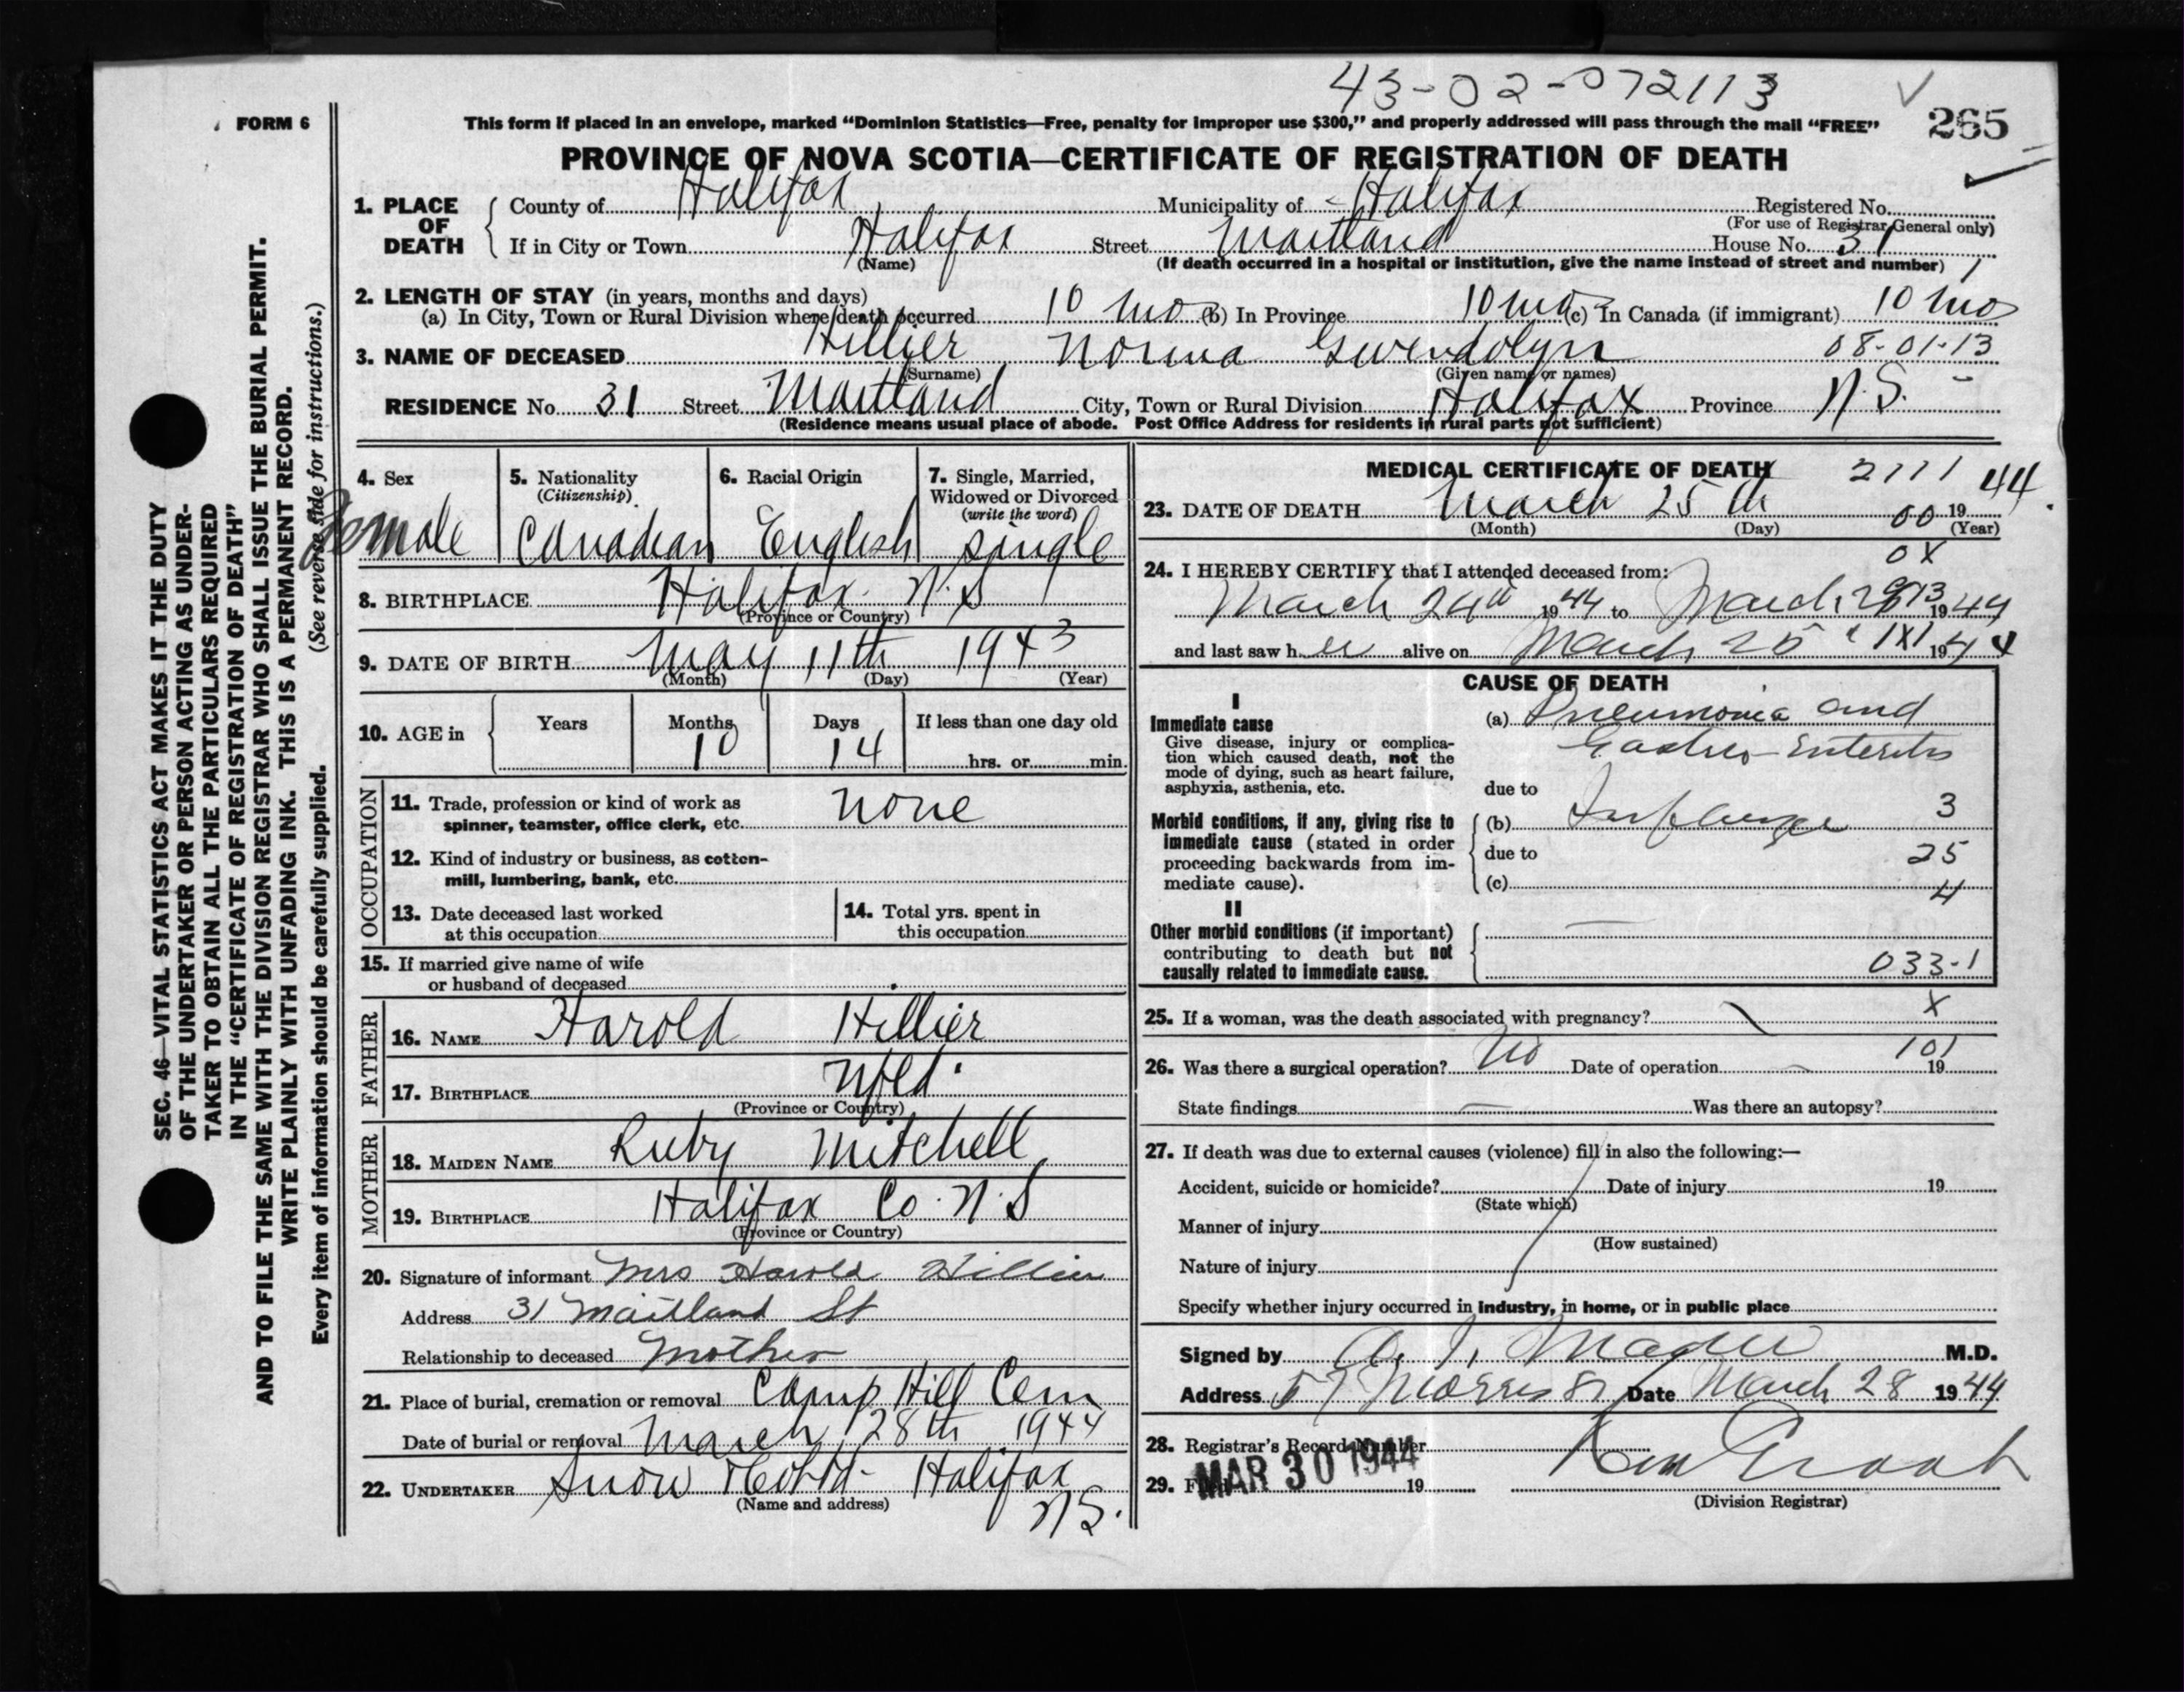 43-02-072113
FORM 6
This form if placed in an envelope, marked “Dominion Statistics—Free, penalty for improper use $300,” and properly addressed will pass through the mail “FREE”
265
PROVINCE OF NOVA SCOTIA—CERTIFICATE OF REGISTRATION OF DEATH
1. PLACE OF DEATH County of Halifax Municipality of Halifax Registered No.
(For use of Registrar General only)
If in City or Town Halifax Street Maitland House No. 31
(Name) (If death occurred in a hospital or institution, give the name instead of street and number) 1
2. LENGTH OF STAY (in years, months and days)
(a) In City, Town or Rural Division where death occurred 10 mo (b) In Province 10 mo (c) In Canada (if immigrant) 10 mo
3. NAME OF DECEASED Hillier Norma Gwendolyn 08-01-13
(Surname) (Given name or names)
RESIDENCE No. 31 Street Maitland City, Town or Rural Division Halifax Province N.S.
(Residence means usual place of abode. Post Office Address for residents in rural parts not sufficient)
4. Sex 5. Nationality (Citizenship) 6. Racial Origin 7. Single, Married, Widowed or Divorced (write the word)
Female Canadian English single
8. BIRTHPLACE Halifax N.S
(Province or Country)
9. DATE OF BIRTH May 11th 1943
(Month) (Day) (Year)
10. AGE in Years Months Days If less than one day old
10 14 hrs. or min.
OCCUPATION
11. Trade, profession or kind of work as
spinner, teamster, office clerk, etc. none
12. Kind of industry or business, as cotton-
mill, lumbering, bank, etc.
13. Date deceased last worked
at this occupation
14. Total yrs. spent in
this occupation
15. If married give name of wife
or husband of deceased
FATHER
16. NAME Harold Hillier
17. BIRTHPLACE Nfld.
(Province or Country)
MOTHER
18. MAIDEN NAME Ruby Mitchell
19. BIRTHPLACE Halifax Co. N.S
(Province or Country)
20. Signature of informant Mrs Harold Hillier
Address 31 Maitland St
Relationship to deceased Mother
21. Place of burial, cremation or removal Camp Hill Cem
Date of burial or removal March 28th 1944
22. UNDERTAKER Snow Halifax
(Name and address) N.S.
MEDICAL CERTIFICATE OF DEATH 2111
23. DATE OF DEATH March 25th 19 44.
(Month) (Day) 00 (Year)
0X
24. I HEREBY CERTIFY that I attended deceased from:
March 24th 1944 to March 1944
and last saw her alive on March 25 1X1 1944
CAUSE OF DEATH
I
Immediate cause
Give disease, injury or complica-
tion which caused death, not the
mode of dying, such as heart failure,
asphyxia, asthenia, etc.
(a) Pneumonia and
Gastro-Enteritis
due to
Morbid conditions, if any, giving rise to
immediate cause (stated in order
proceeding backwards from im-
mediate cause).
(b) Influenza 3
due to 25
(c) 4
II
Other morbid conditions (if important)
contributing to death but not
causally related to immediate cause.
033-1
25. If a woman, was the death associated with pregnancy? X
26. Was there a surgical operation? No Date of operation 19 101
State findings Was there an autopsy?
27. If death was due to external causes (violence) fill in also the following:—
Accident, suicide or homicide? Date of injury 19
(State which)
Manner of injury
(How sustained)
Nature of injury
Specify whether injury occurred in industry, in home, or in public place
Signed by M.D.
Address 57 Morris St Date March 28 1944
28. Registrar's Record Number
29. Filed MAR 30 1944 19
(Division Registrar)
SEC. 46—VITAL STATISTICS ACT MAKES IT THE DUTY
OF THE UNDERTAKER OR PERSON ACTING AS UNDER-
TAKER TO OBTAIN ALL THE PARTICULARS REQUIRED
IN THE “CERTIFICATE OF REGISTRATION OF DEATH”
AND TO FILE THE SAME WITH THE DIVISION REGISTRAR WHO SHALL ISSUE THE BURIAL PERMIT.
WRITE PLAINLY WITH UNFADING INK. THIS IS A PERMANENT RECORD.
Every item of information should be carefully supplied. (See reverse side for instructions.)